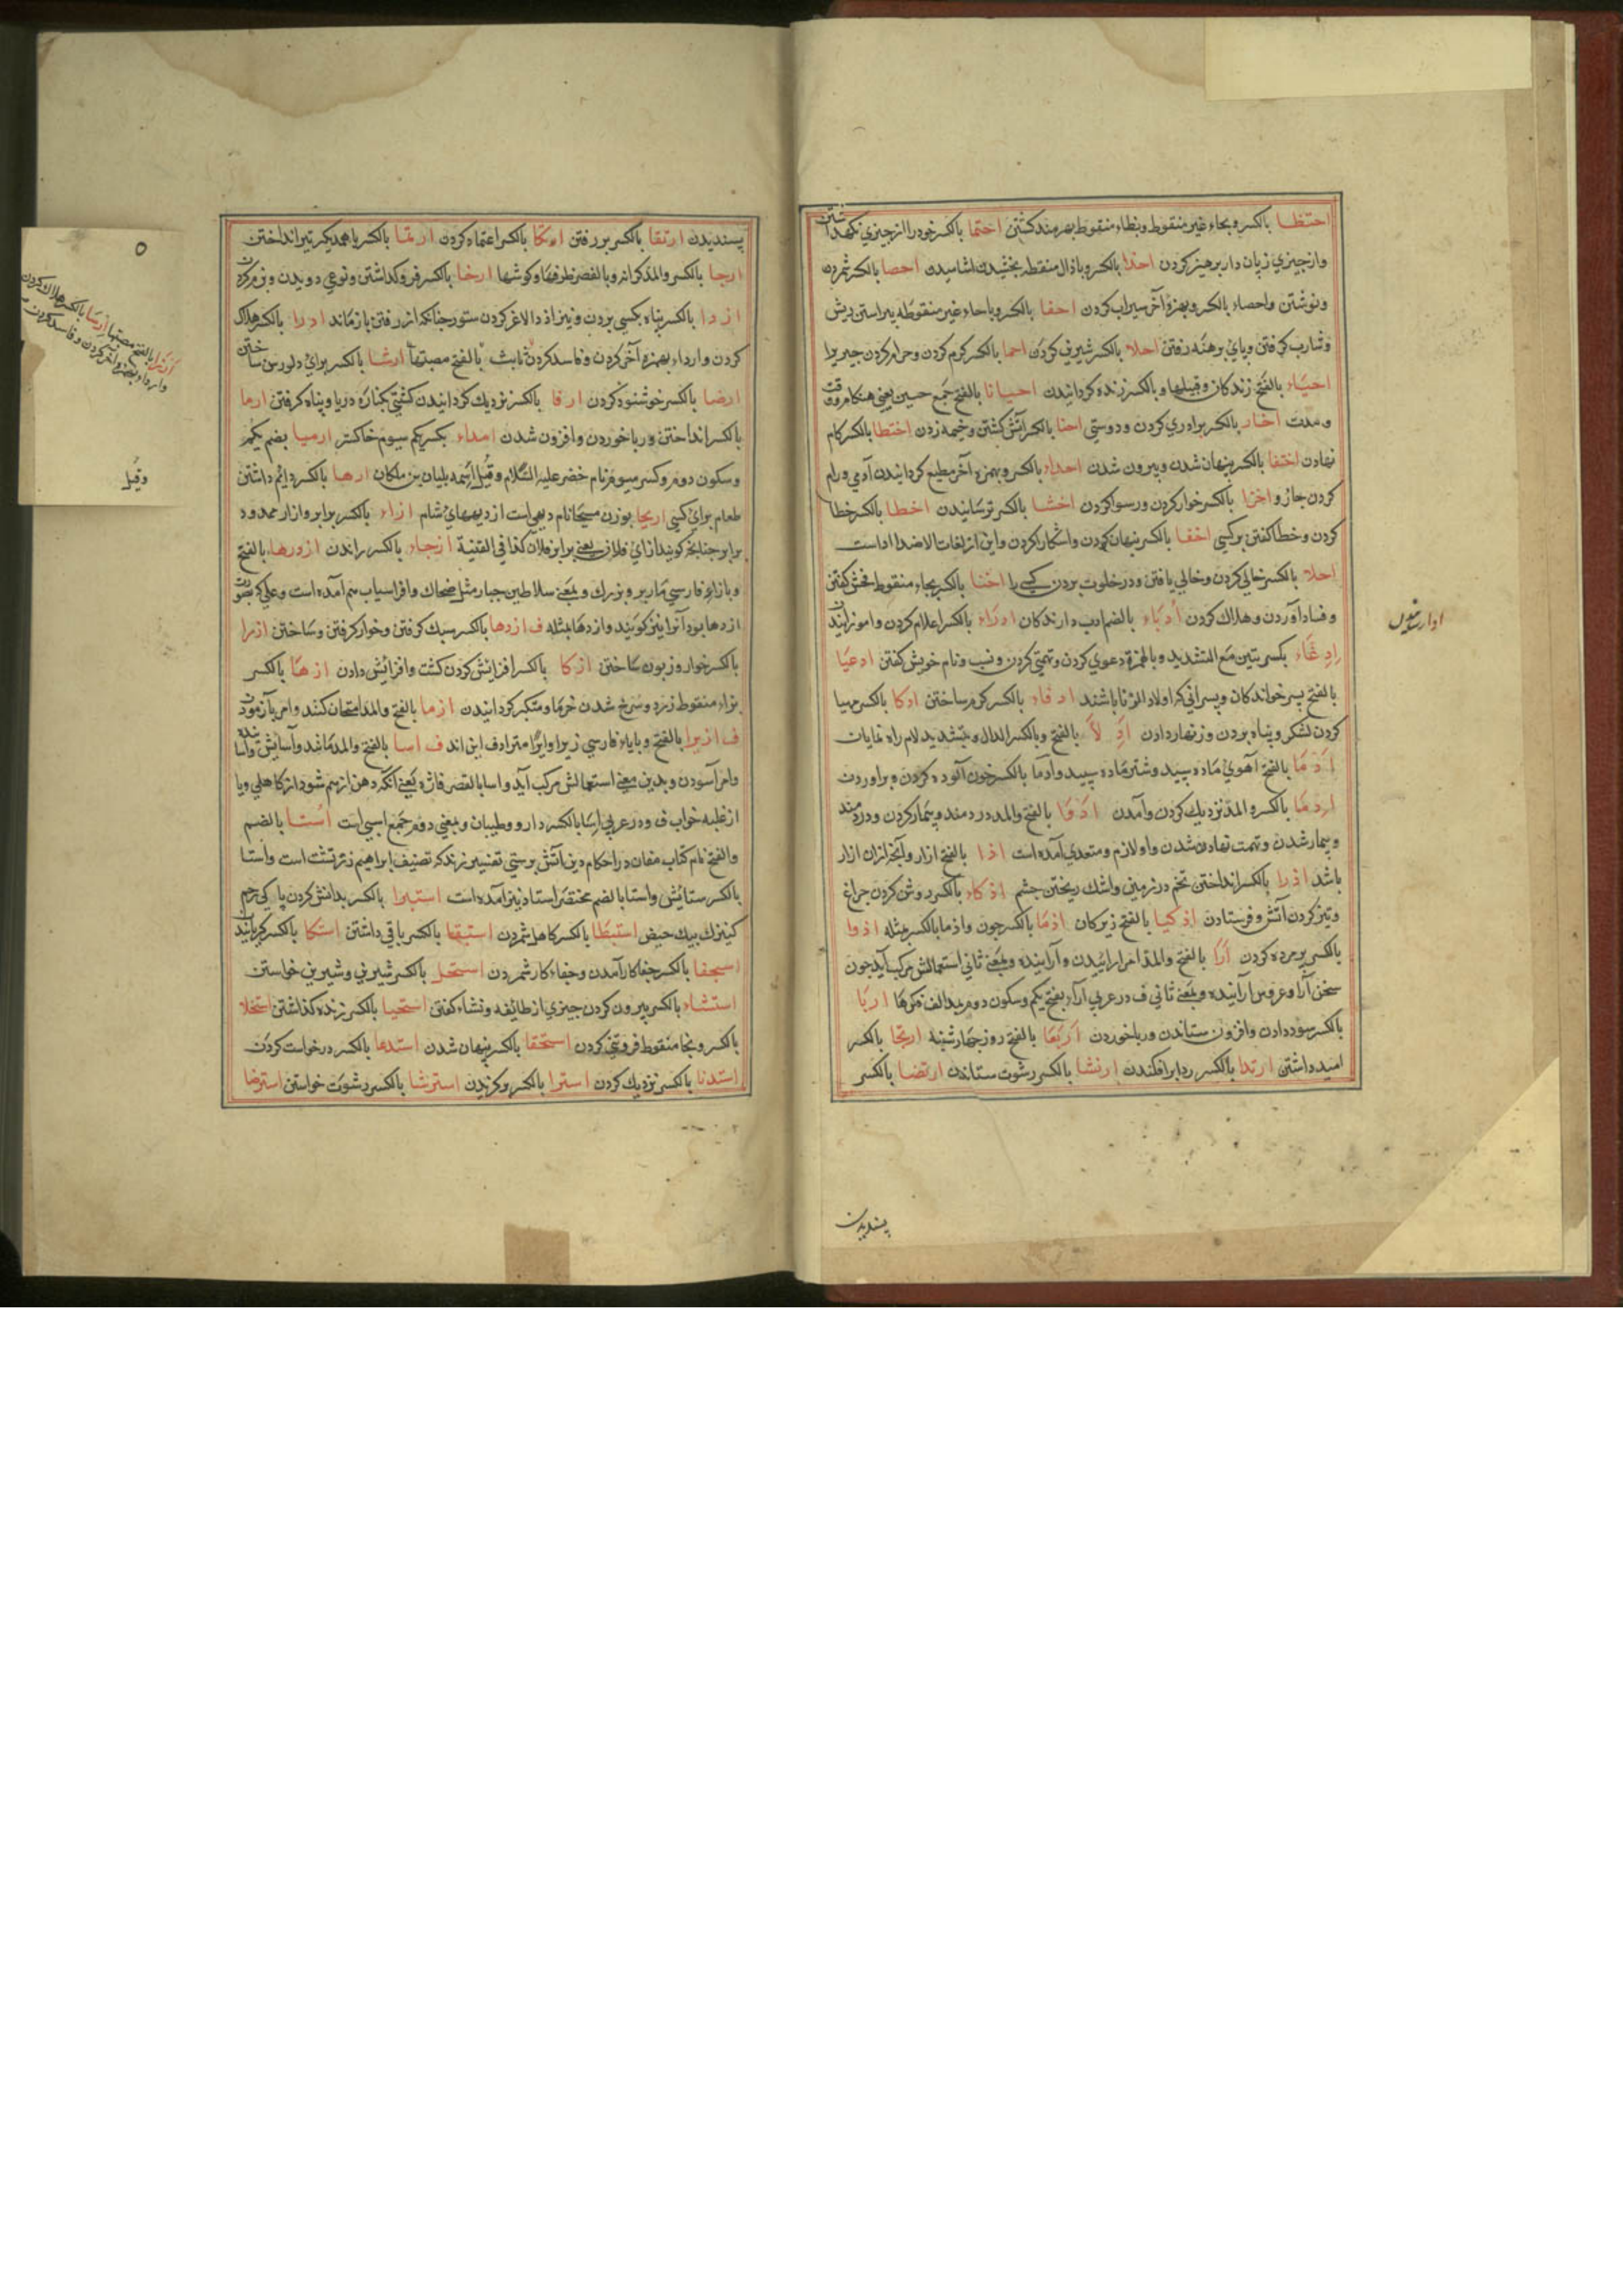 احتظا بالکسر و بحاء غیر منقوط و بظاء منقوط بهرمند کشتن احتما بالکسر خود را از چیزی نکهداشتن
و از چیزی زیان دار پرهیز کردن احذا بالکسر و باذال منقطه بخشیدن احصا بالکسر شمردن
و نوشتن و احصاء بالکسر و بهمزۀ آخر سیراب کردن احفا بالکسر و باحاء غیر منقوطه پیراستن ریش
و شارب کرفتن و پای برهنه رفتن احلا بالکسر شیرین کردن احما بالکسر کرم کردن و حرام کردن چیزیرا
احیاء بالفتح زندکان و قبیلها و بالکسر زنده کردانیدن احیانا بالفتح جمع حین یعنی هنکام و وقت
و مدت اخاء بالکسر برادری کردن و دوستی اخبا بالکسر آتش کشتن و خیمه زدن اختطا بالکسر کام
نهادن اختفا بالکسر پنهان شدن و بیرون شدن بالکسر و بهمزه آخر مطیع کردانیدن آدمی و رام
کردن جاز و اخزا بالکسر خوار کردن و رسوا کردن اخشا بالکسر ترسانیدن اخطا بالکسر خطا
کردن و خطا کفتن بر کسی اخفا بالکسر پنهان کردن و آشکارا کردن و این از لغات الاضداد است
اخلا بالکسر خالی کردن و خالی یافتن و در خلوت بردن کسی را اخنا بالکسر بخاء منقوط فحش کفتن
و فساد آوردن و هلاک کردن ادباء بالضم ادب دارندکان ادراء بالکسر اعلام کردن و آموزانیدن
ادعاء بکسرتین مع التشدید و بالهمزة دعوی کردن و تمنی کردن و نسب و نام خویش کفتن ادعیا
بالفتح پسر خواندکان و پسرانی که اولاد الزنا باشند ادفاء بالکسر کرم ساختن ادکا بالکسر مهیا
کردن لشکر و پناه بردن و زنهار دادن ادلا بالفتح و بالکسر الدال و بتشدید لام راه نمایان
ادما بالفتح آهوی ماده سپید و شتر ماده سپید و ادما بالکسر خون آلوده کردن و برآوردن
بالکسر و المد نزدیک کردن و آمدن ادوا بالفتح و المد دردمند و بیمار کردن و دردمند
و بیمار شدن و تهمت نهادن شدن و او لازم و متعدی آمده است اذا بالفتح ازار و آنچه از ان ازار
باشد اذرا بالکسر انداختن تخم در زمین و اشک ریختن چشم اذکاء بالکسر روشن کردن چراغ
و تیز کردن آتش و فرستادن اذکیا بالفتح زیرکان اذما بالکسر چون و اذما بالکسر مثله اذوا
بالکسر پژمرده کردن آرا بالفتح و المد امر از آرائیدن و آراینده و بمعنی ثانی استعمالش مرکب آید چون
سخن آرا و عروس آراینده و بمعنی ثانی ف در عربی آراء بفتح یکم و سکون دوم بمد الف فکرها اربا
بالکسر سود دادن و افزون ستاندن و ربا خوردن اربعا بالفتح روز چهارشنبه ارتجا بالکسر
امید داشتن ارتدا بالکسر ردا بر افکندن ارتشا بالکسر رشوت ستاندن ارتضا بالکسر
پسندیدن
پسندیدن ارتقا بالکسر بر رفتن اتکا بالکسر اعتماد کردن ارتما بالکسر با همدیکر تیر انداختن
ارجا بالکسر و المد کرانه و بالقصر طرفها و کوشها ارخا بالکسر فرو کذاشتن و نوعی دویدن و نرم کردن
بالکسر پناه بکسی بردن و نیز اذ دا لاغر کردن ستور چنانکه از رفتن باز ماند ادرا بالکسر هلاک
کردن و ارداء بهمزه آخر کردن و فاسد کردن بالفتح مصیبتها ارشا بالکسر برای دلو رسن ساختن
ارضا بالکسر خوشنود کردن ارفا بالکسر نزدیک کردانیدن کشتی بکنارۀ دریا و پناه کرفتن ارما
بالکسر انداختن و ربا خوردن و افزون شدن بکسر یکم سیوم خاکستر ارمیا بضم یکم
و سکون دوم و کسر سیوم نام خضر علیه السلام و قیل اسمه بلیان بن ملکان ارها بالکسر دایم داشتن
طعام برای کسی اریحا بوزن مسیحا نام دیهی است از دیهای شام ازاء بالکسر برابر و ازار ممدود
برابر چنانچه کویند ازای فلان یعنی برابر فلان کذا فی القنیة ازجاء بالکسر راندن ازدرها بالفتح
و بازاء فارسی مار پر و بزرک و بمعنی سلاطین جبار مثل ضحاک و افراسیاب هم آمده است و علمی که بصورت
ازدها بود آنرا نیز کویند و ازدها مثله ف ازدها بالکسر سبک کرفتن و خوار کرفتن و ساختن ازرا
بالکسر خوار و زبون ساختن ازکا بالکسر افزایش کردن کشت و افزائش دادن ازها بالکسر
بزاء منقوط زرد و سرخ شدن خرما و متکبر کردانیدن ازما بالفتح و المد امتحان کنند و امر بآزمودن
ف ازیرا بالفتح و بایاء فارسی زیرا و ایرا مترادف این اند ف اسا بالفتح و المد مانند و آسایش و آساینده
و امر آسودن و بدین معنی استعمالش مرکب آید و اسا بالقصر فاژه یعنی آنکه دهن از هم شود از کاهلی و یا
از غلبه خواب ف و در عربی اسا بالکسر دارو و طبیبان و بمعنی دوم جمع اسی است اُستا بالضم
و الفتح نام کتاب مغان در احکام دین آتش پرستی تفسیر زند که تصنیف ابراهیم زرتشت است و استا
بالکسر ستایش و استا بالضم مختصر استاد نیز آمده است استبرا بالکسر بدانش کردن پاکی رحم
کنیزک بیک حیض استبطا بالکسر کاهل شمردن استبقا بالکسر باقی داشتن استکا بالکسر
استجفا بالکسر جفا کار آمدن و جفاء کار شمردن استحلا بالکسر شیرینی و شیرین خواستن
استشاء بالکسر بیرون کردن چیزی از طائفه و نشاء کفتن استحیا بالکسر زنده کذاشتن استخلا
بالکسر و بخا منقوط فروتنی کردن استخفا بالکسر پنهان شدن استدعا بالکسر درخواست کردن
استدنا بالکسر نزدیک کردن استرا بالکسر بر کزیدن استرشا بالکسر رشوت خواستن استرضا
وقیل